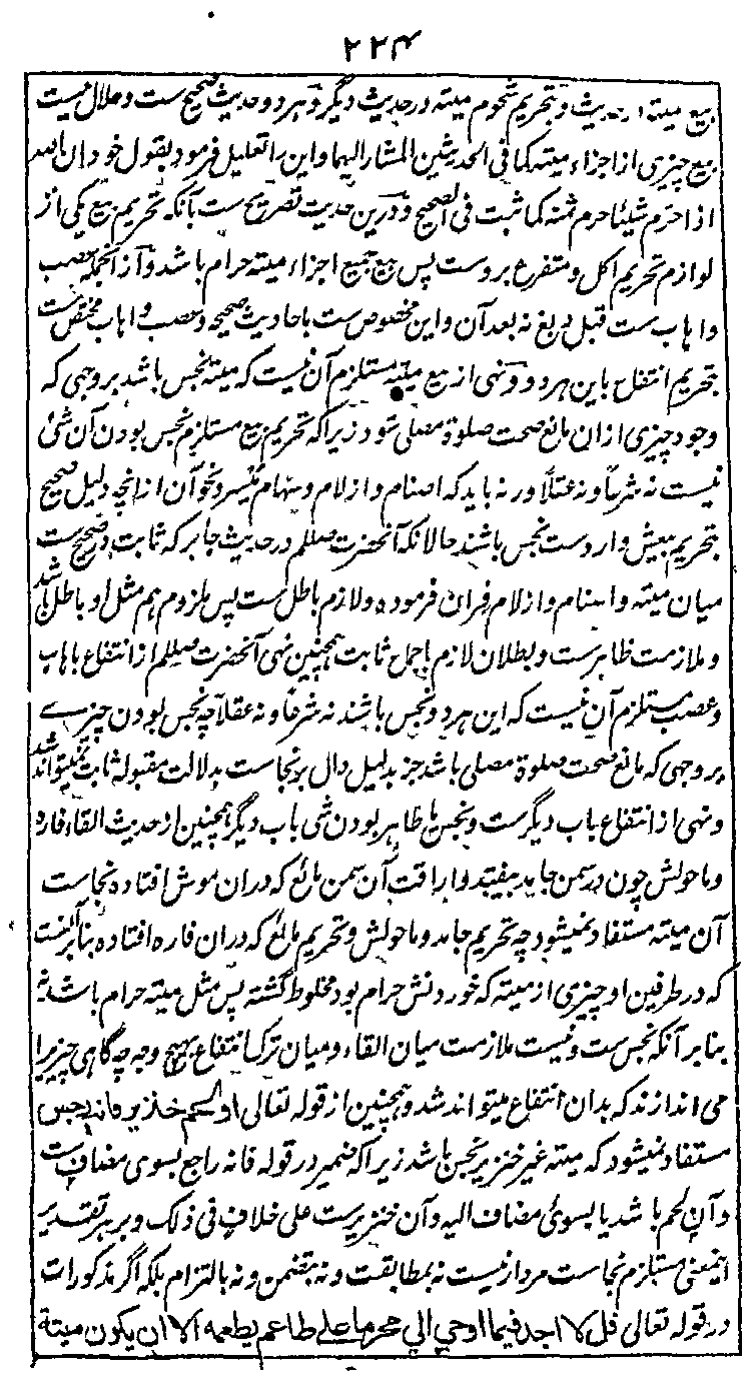 ۲۲۴
بیع میته در حدیث و تحریم شحوم میته در حدیث دیگر و هر دو حدیث صحیح ست و حلال نیست
بیع چیزی از اجزاء میته کما فی الحدیثین المشار الیهما و این را تعلیل فرمود بقول خود ان الله
اذا حرم شیئا حرم ثمنه کما ثبت فی الصحیح و درین حدیث تصریح ست بآنکه تحریم بیع یکی از
لوازم تحریم اکل و متفرع بروست پس بیع جمیع اجزاء میته حرام باشد و از آنجمله عصب
و اهاب ست قبل دبغ نه بعد آن و این مخصوص ست باحادیث صحیحه و عصب و اهاب مختص ست
بتحریم انتفاع باین هر دو و نهی از بیع میته مستلزم آن نیست که میته نجس باشد بروجهی که
وجود چیزی از ان مانع صحت صلوة مصلی شود زیرا که تحریم بیع مستلزم نجس بودن آن شئ
نیست نه شرعاً و نه عقلاً ورنه باید که اصنام و ازلام و سهام میسر و نحو آن از انچه دلیل صحیح
بتحریم بیعش وارد ست نجس باشند حالانکه آنحضرت صللم در حدیث جابر که ثابت در صحیح ست
میان میته و اصنام و ازلام قران فرموده و لازم باطل ست پس ملزوم هم مثل او باطل باشد
و ملازمت ظاهر ست و بطلان لازم باجماع ثابت همچنین نهی آنحضرت صللم از انتفاع باهاب
و عصب مستلزم آن نیست که این هر دو نجس باشند نه شرعاً و نه عقلاً چه نجس بودن چیزے
بروجهی که مانع صحت صلوة مصلی باشد جز بدلیل دال بر نجاست بدلالت مقبوله ثابت نمیتواند شد
و نهی از انتفاع باب دیگر ست و نجس یا طاهر بودن شی باب دیگر همچنین از حدیث القاء فاره
و ماحولش چون در سمن جامد بیفتد و اراقت آن سمن مائع که دران موش افتاده نجاست
آن میته مستفاد نمیشود چه تحریم جامد و ماحولش و تحریم مائع که دران فاره افتاده بنابر آنست
که در طرفین او چیزی از میته که خوردنش حرام بود مخلوط گشته پس مثل میته حرام باشد نه
بنابر آنکه نجس ست و نیست ملازمت میان القاء و میان ترک انتفاع بهیچ وجه چه گاهی چیز را
می اندازند که بدان انتفاع میتواند شد و همچنین از قوله تعالی او لحم خنزیر فانه رجس
مستفاد نمیشود که میته غیر خنزیر نجس باشد زیرا که ضمیر در قوله فانه راجع بسوی مضاف ست
و آن لحم باشد یا بسوئ مضاف الیه و آن خنزیر ست علی خلاف فی ذلک و بر هر تقدیر
اینمعنی مستلزم نجاست مردار نیست نه بمطابقت و نه بتضمن و نه بالتزام بلکه اگر مذکورات
در قوله تعالی قل لا اجد فیما اوحی الی محرما علی طاعم یطعمه الا ان یکون میتة